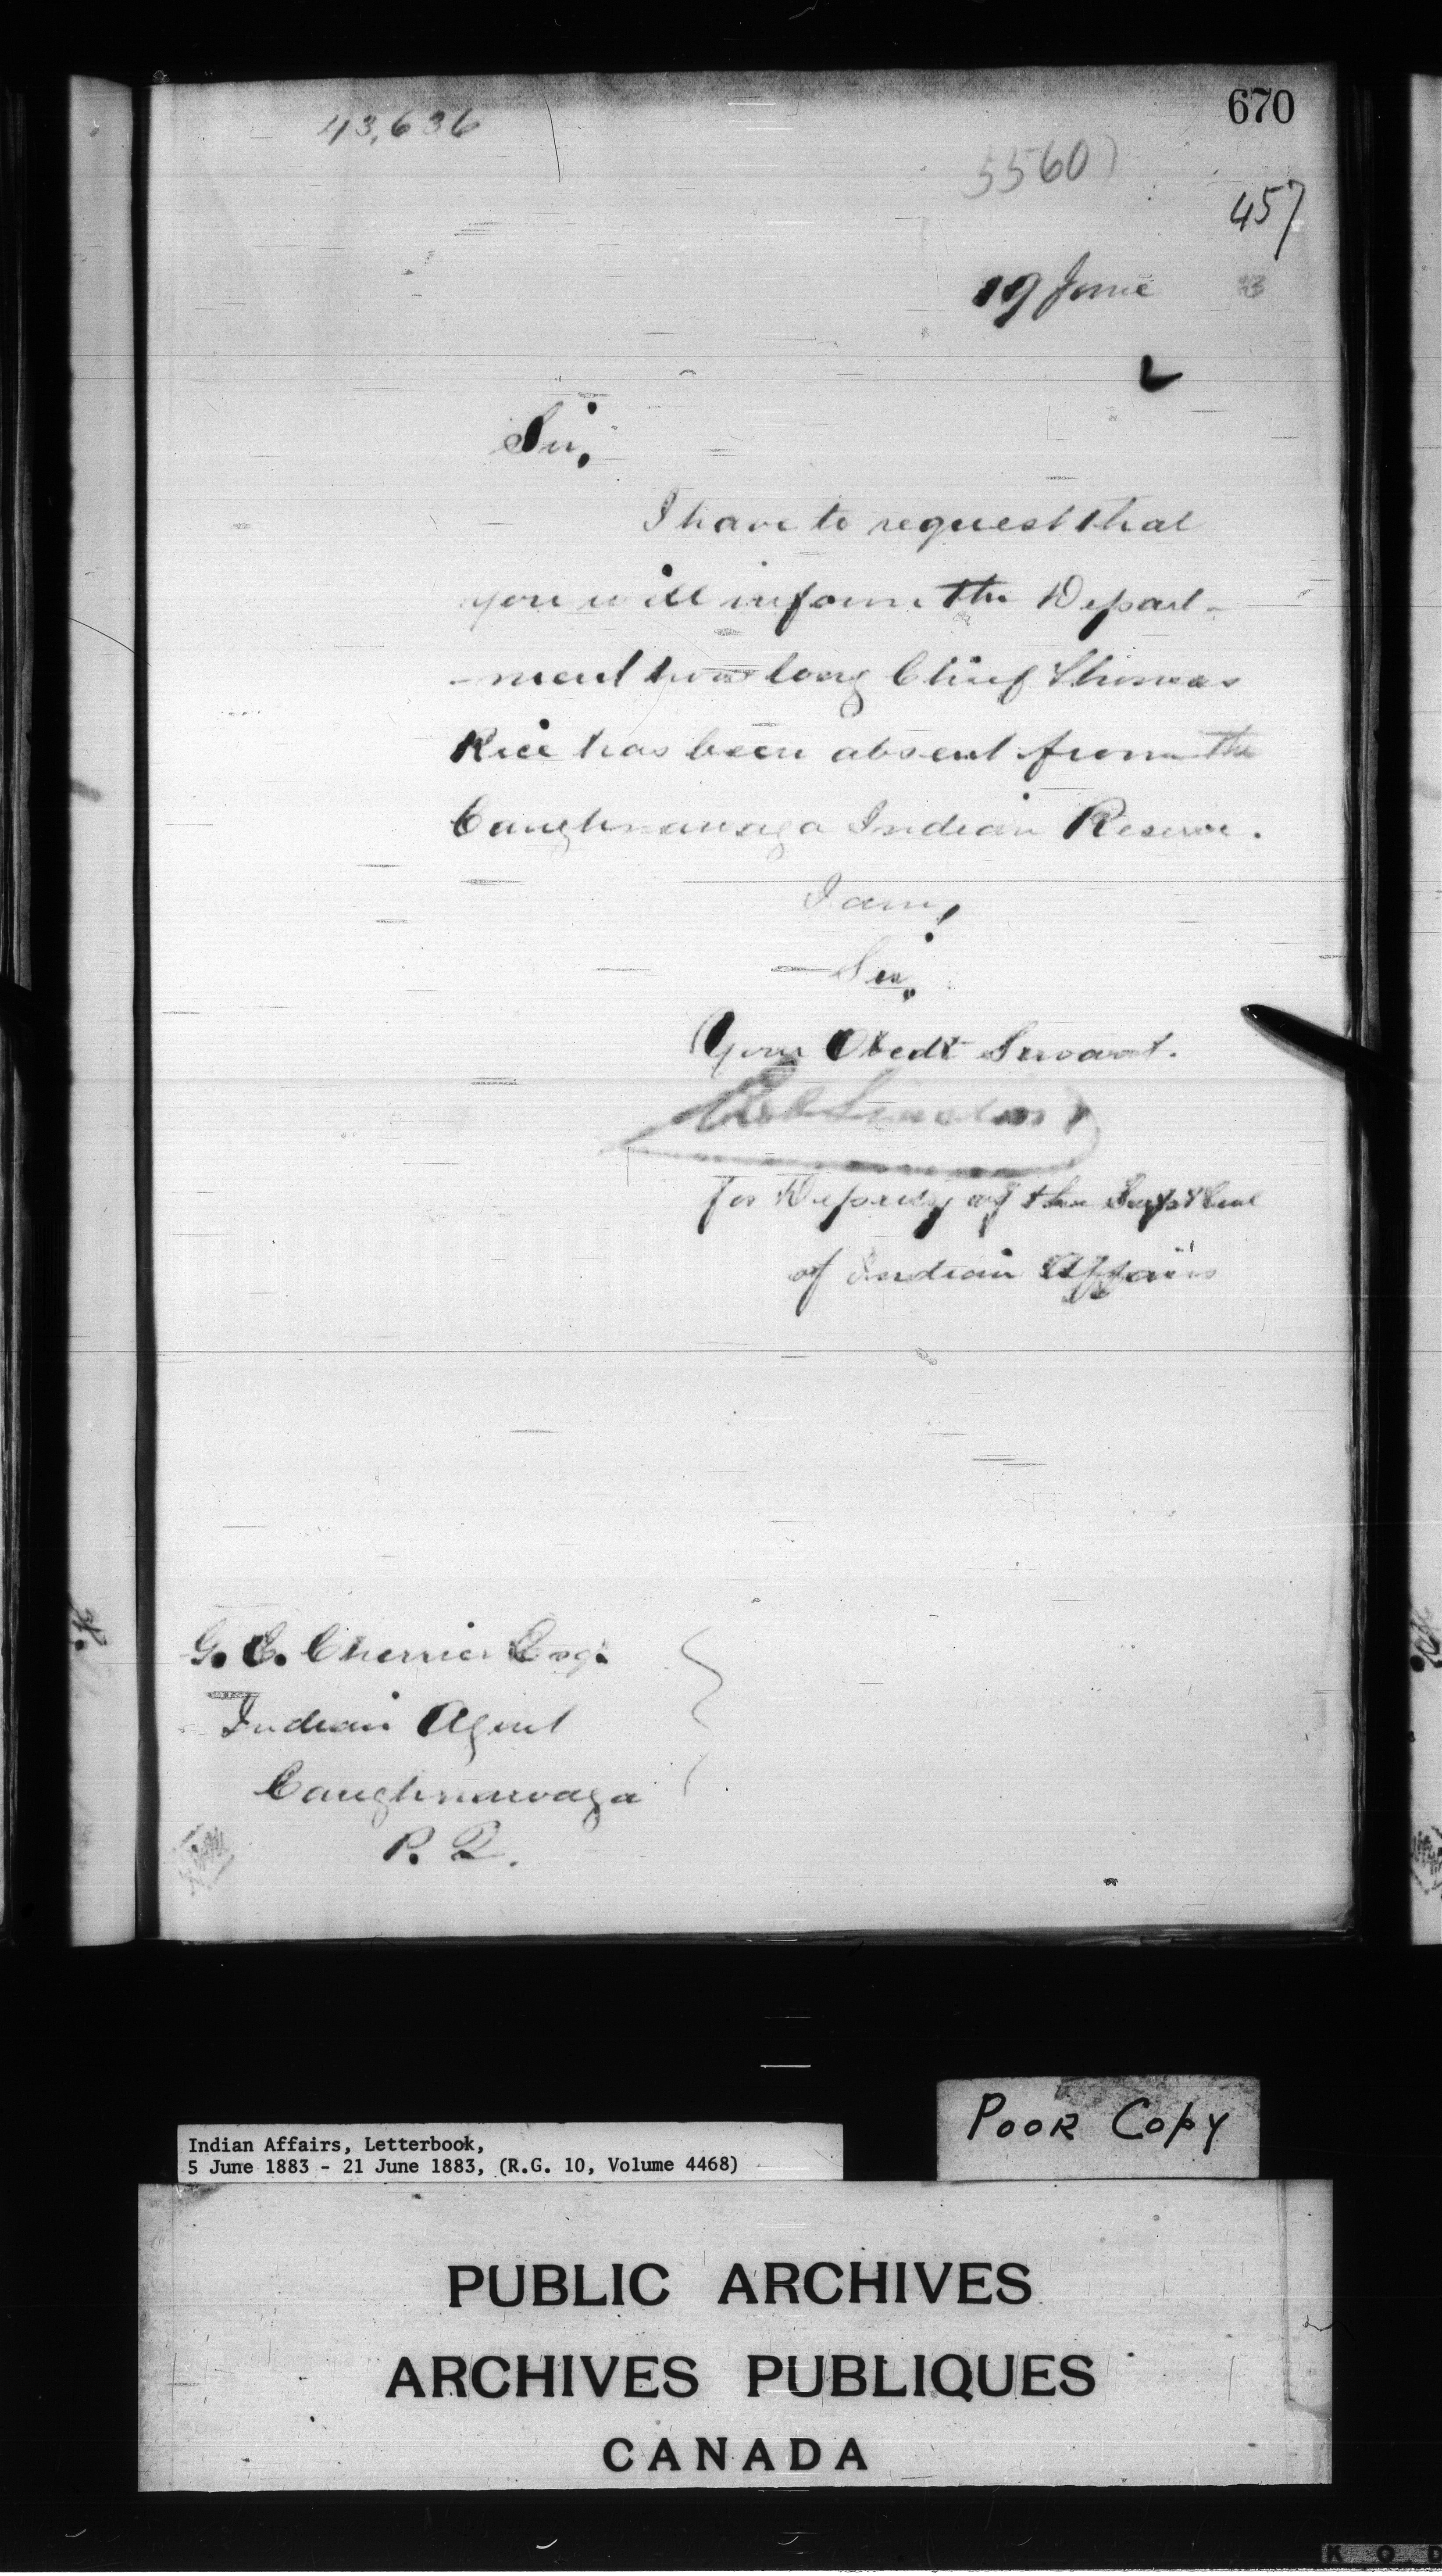 670
43,636
5560
457
19 June 3
Sir,
I have to request that
you will inform the Depart-
-ment how long Chief Thomas
Rice has been absent from the
Caughnawaga Indian Reserve.
I am,
Sir,
Your Obedt Servant.
for Deputy of the Supt Genl
of Indian Affairs
G. E. Cherrier Esqr
Indian Agent
Caughnawaga
P. Q.
Poor Copy
Indian Affairs, Letterbook,
5 June 1883 - 21 June 1883, (R.G. 10, Volume 4468)
PUBLIC ARCHIVES
ARCHIVES PUBLIQUES
CANADA